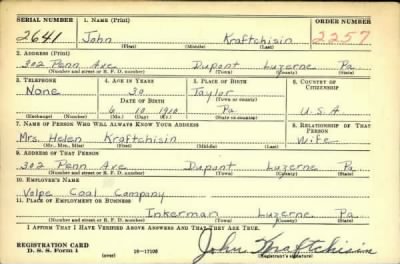 SERIAL NUMBER 1. NAME (Print) ORDER NUMBER
2641 John Kraftchisin 2257
(First) (Middle) (Last)
2. ADDRESS (Print)
302 Penn Ave Dupont Luzerne Pa
(Number and street or R. F. D. number) (Town) (County) (State)
3. TELEPHONE 4. AGE IN YEARS 5. PLACE OF BIRTH 6. COUNTRY OF CITIZENSHIP
None 30 Taylor
DATE OF BIRTH (Town or county)
6 10 1910 Pa U.S.A
(Exchange) (Number) (Mo.) (Day) (Yr.) (State or country)
7. NAME OF PERSON WHO WILL ALWAYS KNOW YOUR ADDRESS 8. RELATIONSHIP OF THAT PERSON
Mrs. Helen Kraftchisin Wife
(Mr., Mrs., Miss) (First) (Middle) (Last)
9. ADDRESS OF THAT PERSON
302 Penn Ave Dupont Luzerne Pa
(Number and street or R. F. D. number) (Town) (County) (State)
10. EMPLOYER'S NAME
Volpe Coal Company
11. PLACE OF EMPLOYMENT OR BUSINESS
Inkerman Luzerne Pa
(Number and street or R. F. D. number) (Town) (County) (State)
I AFFIRM THAT I HAVE VERIFIED ABOVE ANSWERS AND THAT THEY ARE TRUE.
REGISTRATION CARD
D. S. S. Form 1 (over) 16-17105 John Kraftchisin
(Registrant's signature)